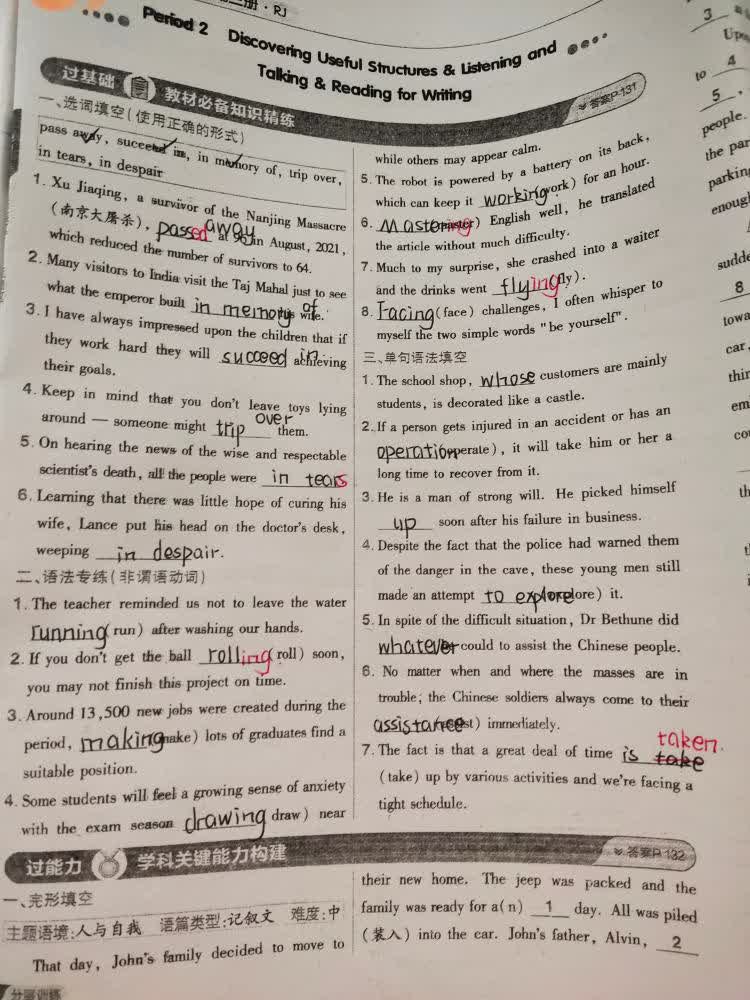 三册·RJ
Period 2 Discovering Useful Structures & Listening and
Talking & Reading for Writing
过基础 教材必备知识精练 答案P.131
一、选词填空(使用正确的形式)
pass away, succeed in, in memory of, trip over,
in tears, in despair
1. Xu Jiaqing, a survivor of the Nanjing Massacre
(南京大屠杀), passed away at 96 in August, 2021,
which reduced the number of survivors to 64.
2. Many visitors to India visit the Taj Mahal just to see
what the emperor built in memory of his wife.
3. I have always impressed upon the children that if
they work hard they will succeed in achieving
their goals.
4. Keep in mind that you don't leave toys lying
around — someone might trip over them.
5. On hearing the news of the wise and respectable
scientist's death, all the people were in tears
6. Learning that there was little hope of curing his
wife, Lance put his head on the doctor's desk,
weeping in despair.
二、语法专练(非谓语动词)
1. The teacher reminded us not to leave the water
running (run) after washing our hands.
2. If you don't get the ball rolling (roll) soon,
you may not finish this project on time.
3. Around 13,500 new jobs were created during the
period, making (make) lots of graduates find a
suitable position.
4. Some students will feel a growing sense of anxiety
with the exam season drawing (draw) near
while others may appear calm.
5. The robot is powered by a battery on its back,
which can keep it working (work) for an hour.
6. Mastering (master) English well, he translated
the article without much difficulty.
7. Much to my surprise, she crashed into a waiter
and the drinks went flying (fly).
8. Facing (face) challenges, I often whisper to
myself the two simple words "be yourself".
三、单句语法填空
1. The school shop, whose customers are mainly
students, is decorated like a castle.
2. If a person gets injured in an accident or has an
operation (operate), it will take him or her a
long time to recover from it.
3. He is a man of strong will. He picked himself
up soon after his failure in business.
4. Despite the fact that the police had warned them
of the danger in the cave, these young men still
made an attempt to explore (explore) it.
5. In spite of the difficult situation, Dr Bethune did
whatever could to assist the Chinese people.
6. No matter when and where the masses are in
trouble, the Chinese soldiers always come to their
assistance (assist) immediately.
7. The fact is that a great deal of time is take taken
(take) up by various activities and we're facing a
tight schedule.
过能力 学科关键能力构建 答案P.132
一、完形填空
主题语境:人与自我 语篇类型:记叙文 难度:中
That day, John's family decided to move to
their new home. The jeep was packed and the
family was ready for a(n) 1 day. All was piled
(装入) into the car. John's father, Alvin, 2
分层训练
3
Upo
to 4
5,
people.
the par
parking
enough
sudde
8
towa
car,
thir
em
co
th